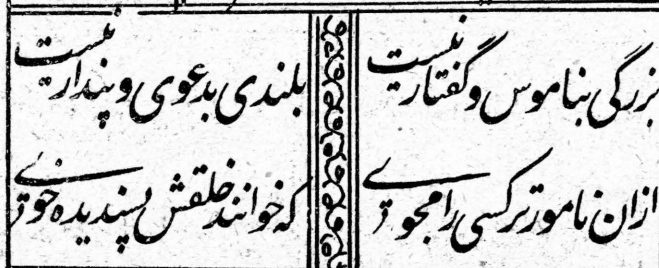 بزرگی بناموس و گفتار نیست
بلندی بدعوی و پندار نیست
ازان نامورتر کسی را مجوی
که خوانند خلقش پسندیده خوی